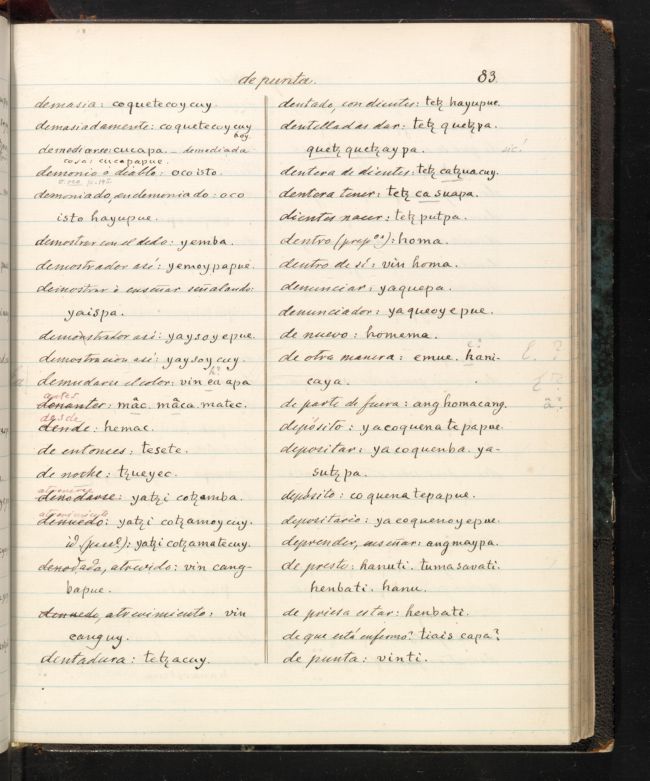 de punta.
83
demasia: coquetecoycuy.
demasiadamente: coquetecoycuy
hoy.
demediarse: cucapa. _ demediada
cosa: cucapapue.
demonio o diablo: ocoisto.
demoniado, endemoniado: oco
isto hayupue.
demostrar con el dedo: yemba.
demostrador asi: yemoypapue.
demostrar ò enseñar señalando:
yaispa.
demonstrador asi: yaysoyepue.
demostracion asi: yaysoycuy.
h?
demudarse el color: vin ea apa
antes
denantes: mâc. mâca. matec.
desde
dende: hemac.
de entonces: tesete.
de noche: tzueyec.
atreverse
denodarse: yatzi cotzamba.
atrevimiento
denuedo: yatzi cotzamoycuy.
id. (pasº.): yatzi cotzamatecuy.
denodado, atrevido: vin cang-
bapue.
denuedo, atrevimiento: vin
canguy.
dentadura: tetzacuy.
dentado, con dientes: tetz hayupue.
dentelladas dar: tetz quetzpa.
quetzquetzaypa.
sic!
dentera de dientes: tetz catzuacuy.
dentera tener: tetz casuapa.
dientes nacer: tetz putpa.
dentro (prepºⁿ): homa.
dentro de sí: vin homa.
denunciar: yaquepa.
denunciador: yaqueoyepue.
de nuevo: homema.
e?
de otra manera: emue. hani-
caya.
de parte de fuera: anghomacang.
â?
depósito: yacoquenatepapue.
depositar: yacoquenba. ya-
sutzpa.
depósito: coquenatepapue.
depositario: yacoquenoyepue.
deprender, enseñar: angmaypa.
de presto: hanuti. tumasavati.
henbati. hanu.
de priesa estar: henbati.
de que está enfermo? tiais capa?
de punta: vinti.